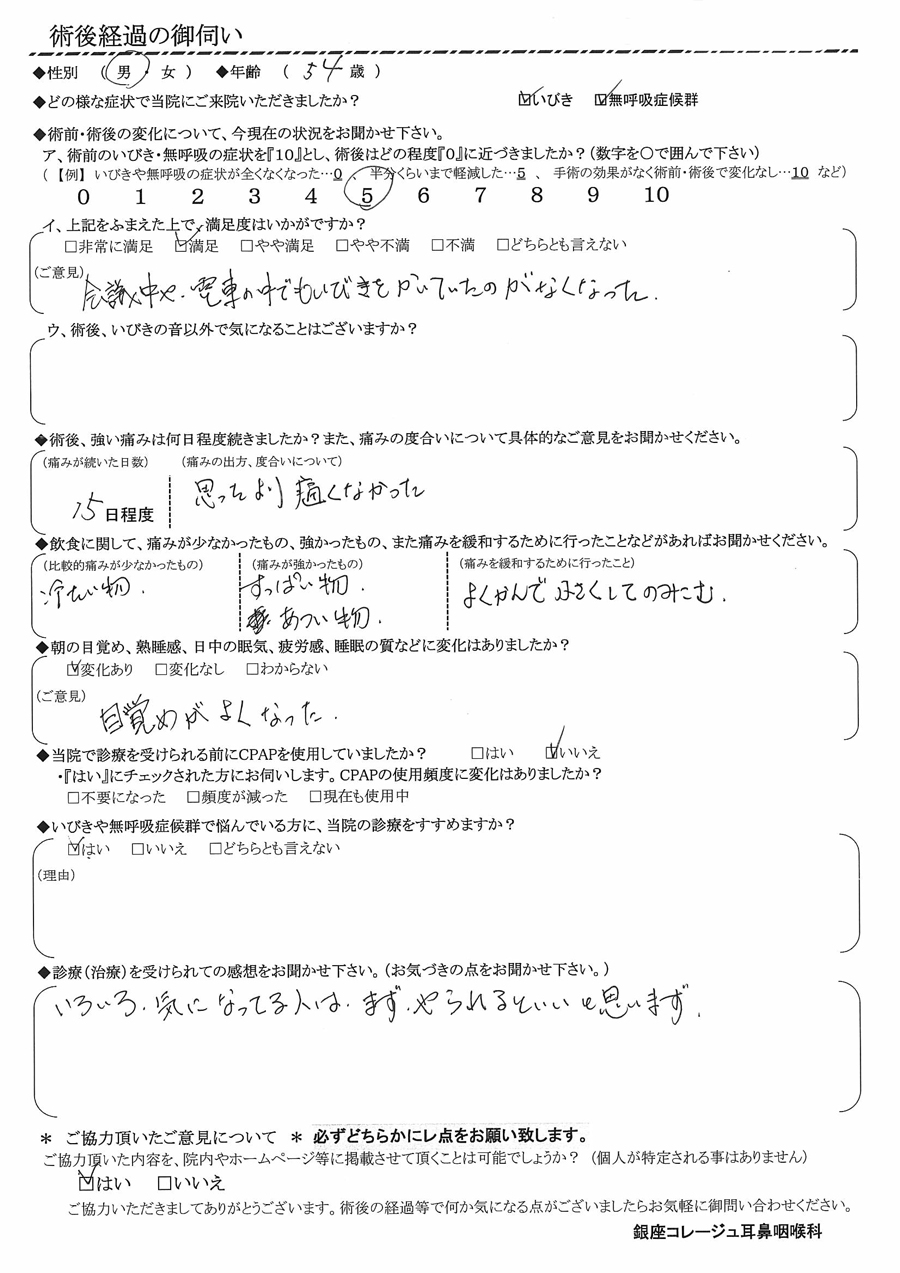 術後経過の御伺い
◆性別 ( 男 ・ 女 ) ◆年齢 ( 54 歳 )
◆どの様な症状で当院にご来院いただきましたか? ☑いびき ☑無呼吸症候群
◆術前・術後の変化について、今現在の状況をお聞かせ下さい。
ア、術前のいびき・無呼吸の症状を『10』とし、術後はどの程度『0』に近づきましたか?(数字を〇で囲んで下さい)
(【例】いびきや無呼吸の症状が全くなくなった…0 、半分くらいまで軽減した…5 、手術の効果がなく術前・術後で変化なし…10 など)
0 1 2 3 4 5 6 7 8 9 10
イ、上記をふまえた上で、満足度はいかがですか?
□非常に満足 ☑満足 □やや満足 □やや不満 □不満 □どちらとも言えない
(ご意見)
会議中や、電車の中でもいびきをかいていたのがなくなった.
ウ、術後、いびきの音以外で気になることはございますか?
◆術後、強い痛みは何日程度続きましたか?また、痛みの度合いについて具体的なご意見をお聞かせください。
(痛みが続いた日数) (痛みの出方、度合いについて)
15日程度 思ったより痛くなかった
◆飲食に関して、痛みが少なかったもの、強かったもの、また痛みを緩和するために行ったことなどがあればお聞かせください。
(比較的痛みが少なかったもの) (痛みが強かったもの) (痛みを緩和するために行ったこと)
冷たい物. すっぱい物. よくかんで小さくしてのみこむ.
あつい物.
◆朝の目覚め、熟睡感、日中の眠気、疲労感、睡眠の質などに変化はありましたか?
☑変化あり □変化なし □わからない
(ご意見)
目覚めがよくなった.
◆当院で診療を受けられる前にCPAPを使用していましたか? □はい ☑いいえ
・『はい』にチェックされた方にお伺いします。CPAPの使用頻度に変化はありましたか?
□不要になった □頻度が減った □現在も使用中
◆いびきや無呼吸症候群で悩んでいる方に、当院の診療をすすめますか?
☑はい □いいえ □どちらとも言えない
(理由)
◆診療(治療)を受けられての感想をお聞かせ下さい。(お気づきの点をお聞かせ下さい。)
いろいろ、気になってる人は、まず、やられるといいと思いまず.
＊ ご協力頂いたご意見について ＊ 必ずどちらかにレ点をお願い致します。
ご協力頂いた内容を、院内やホームページ等に掲載させて頂くことは可能でしょうか? (個人が特定される事はありません)
☑はい □いいえ
ご協力いただきましてありがとうございます。術後の経過等で何か気になる点がございましたらお気軽に御問い合わせください。
銀座コレージュ耳鼻咽喉科